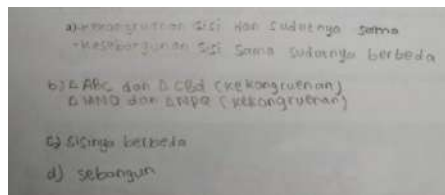 a) kekongruenan sisi dan sudutnya sama
- kesebangunan sisi sama sudutnya berbeda
b) Δ ABC dan Δ CBd (kekongruenan)
Δ MNO dan Δ NPQ (kekongruenan)
c) sisinya berbeda
d) sebangun